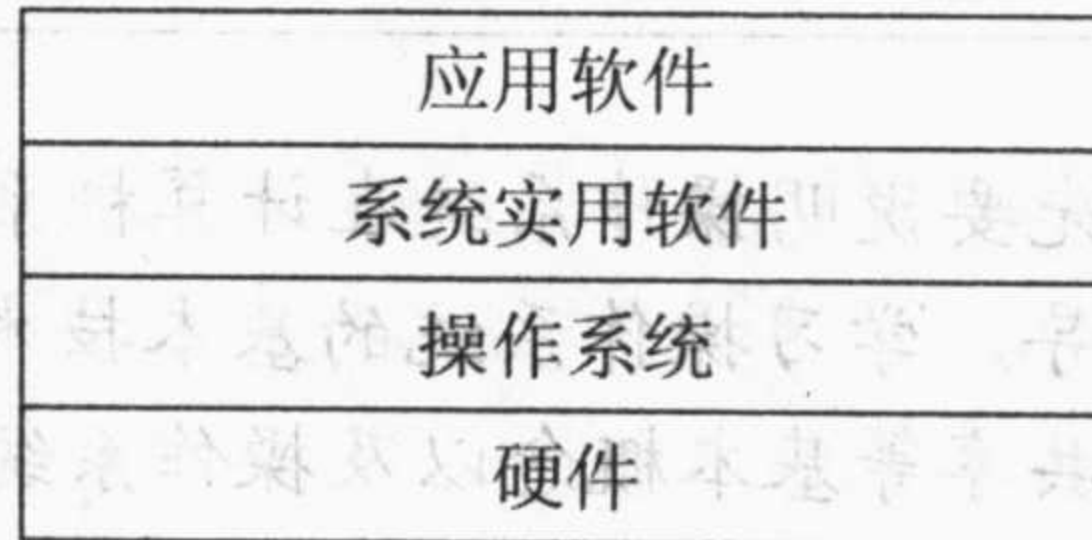 应用软件
系统实用软件
操作系统
硬件